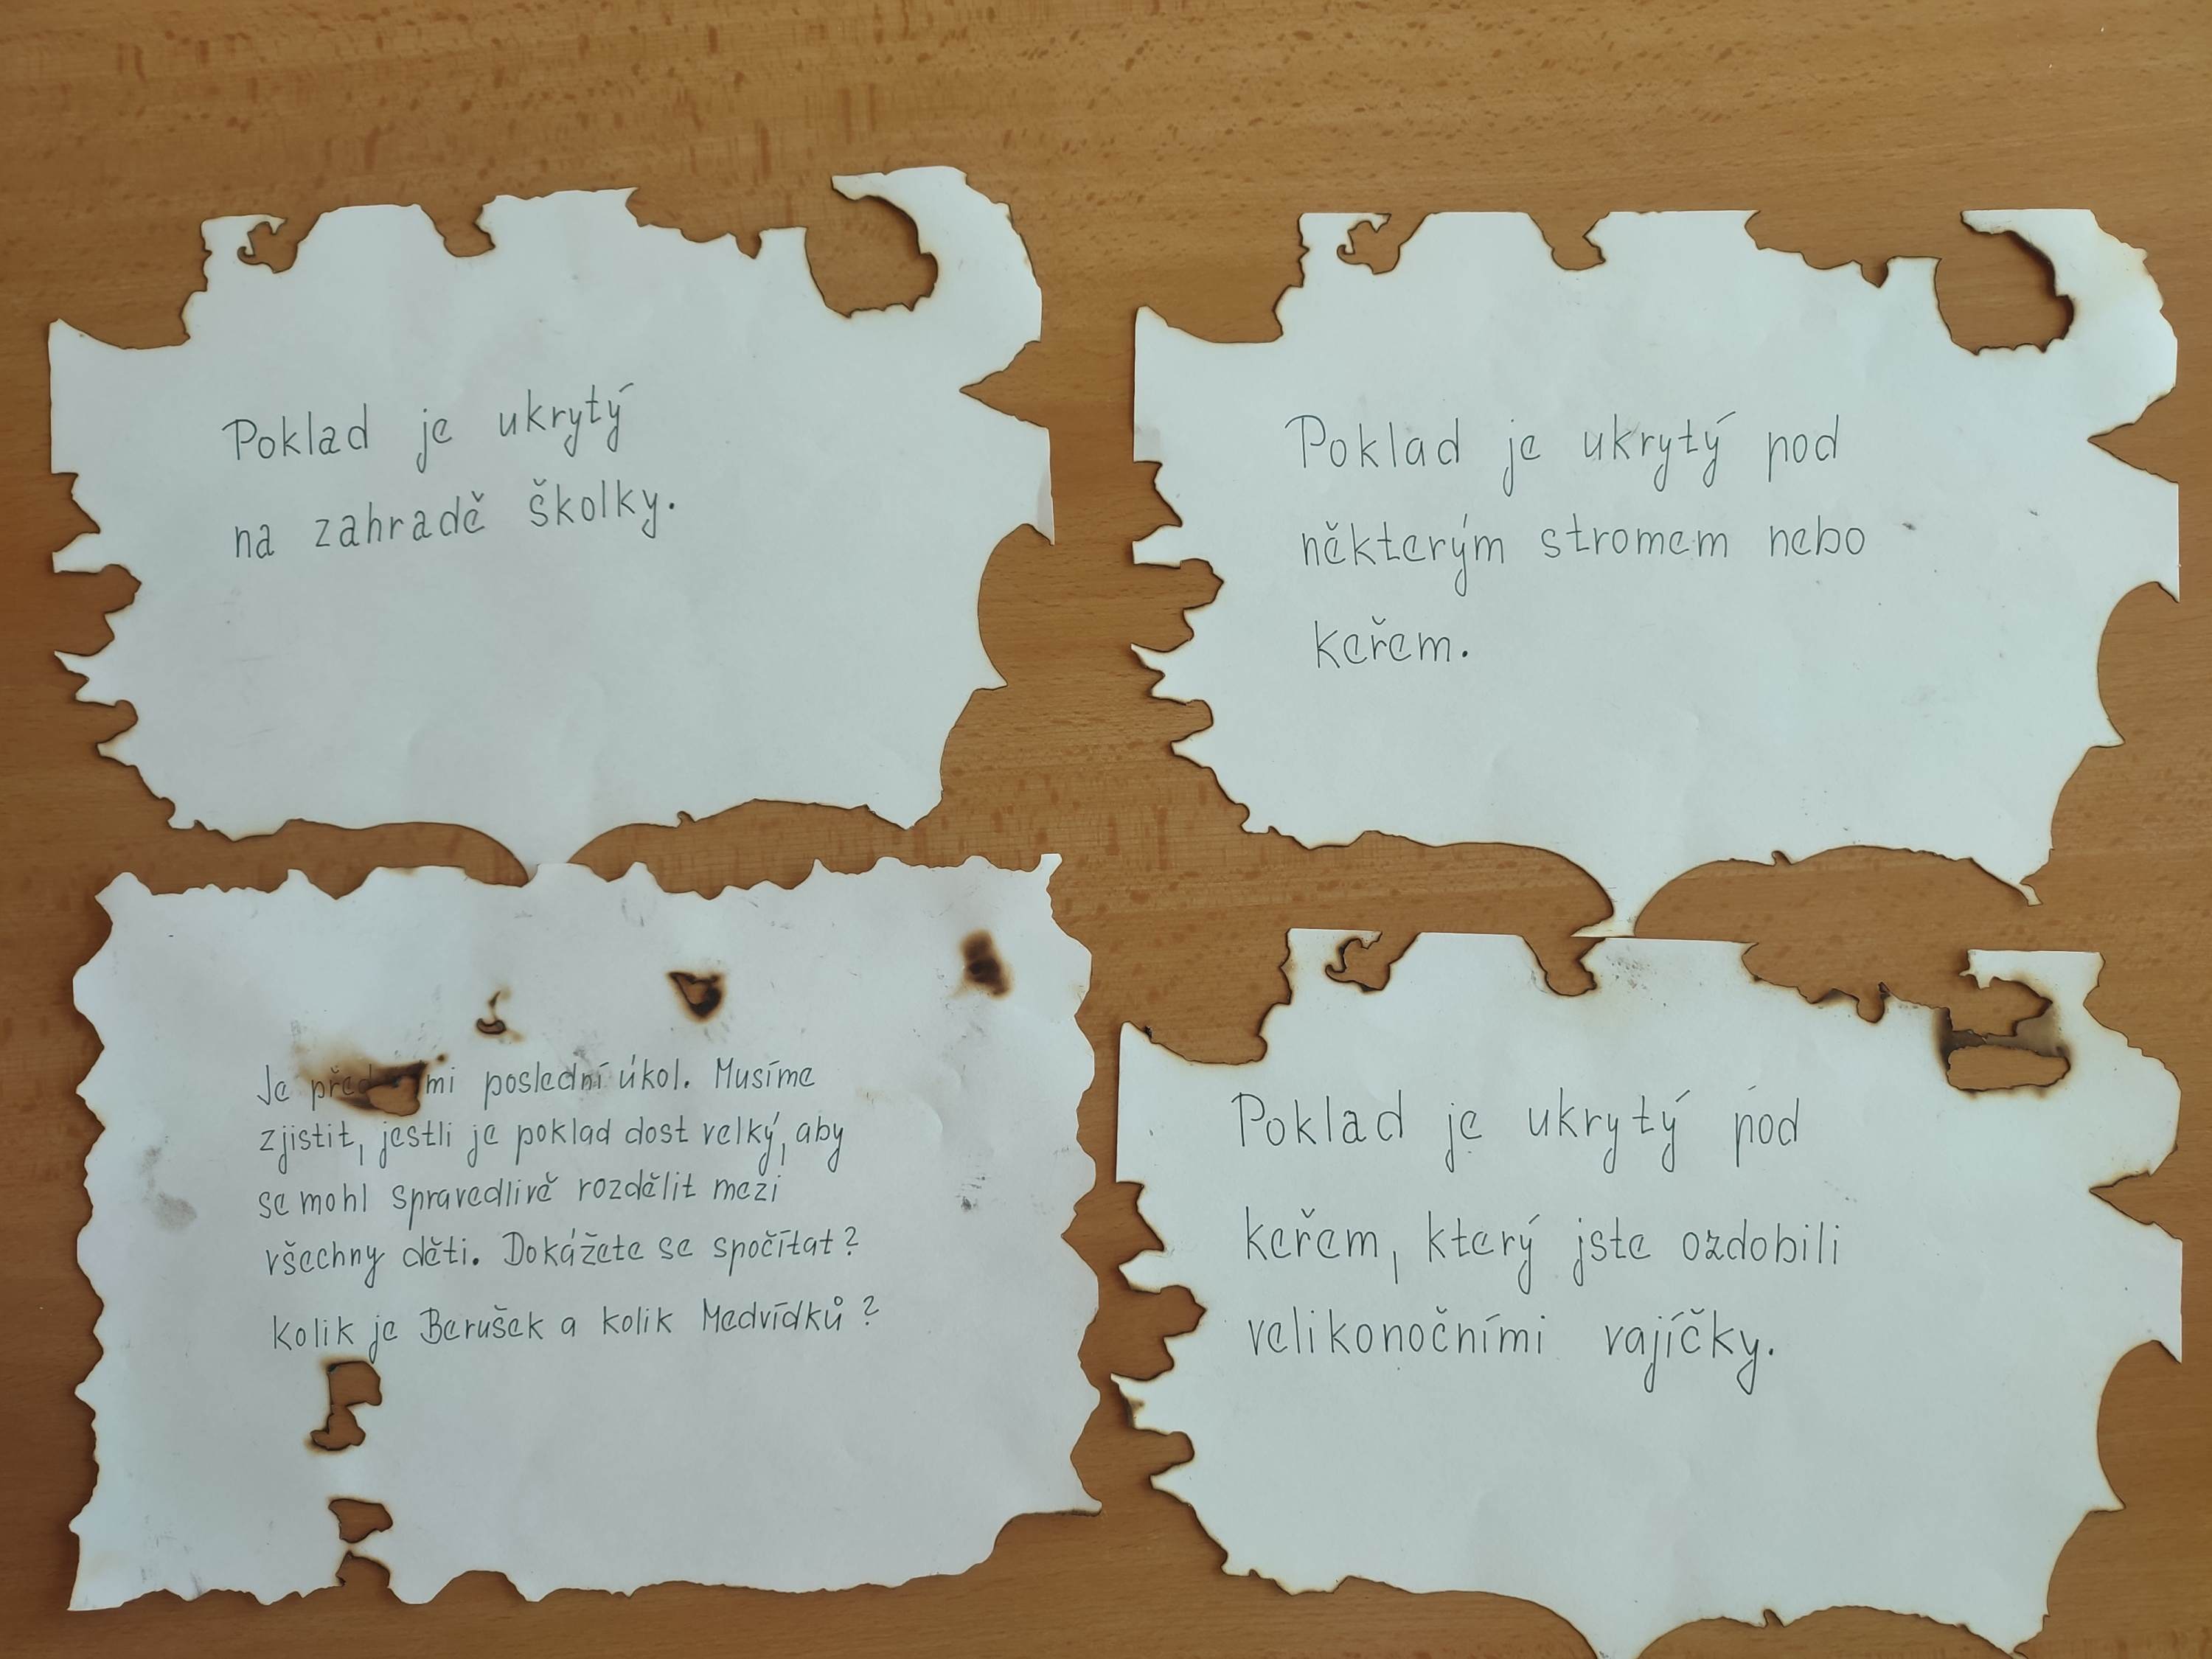 Poklad je ukrytý
na zahradě školky.
Poklad je ukrytý pod
některým stromem nebo
keřem.
Je před mi poslední úkol. Musíme
zjistit, jestli je poklad dost velký, aby
se mohl spravedlivě rozdělit mezi
všechny děti. Dokážete se spočítat?
Kolik je Berušek a kolik Medvídků?
Poklad je ukrytý pod
keřem, který jste ozdobili
velikonočními vajíčky.